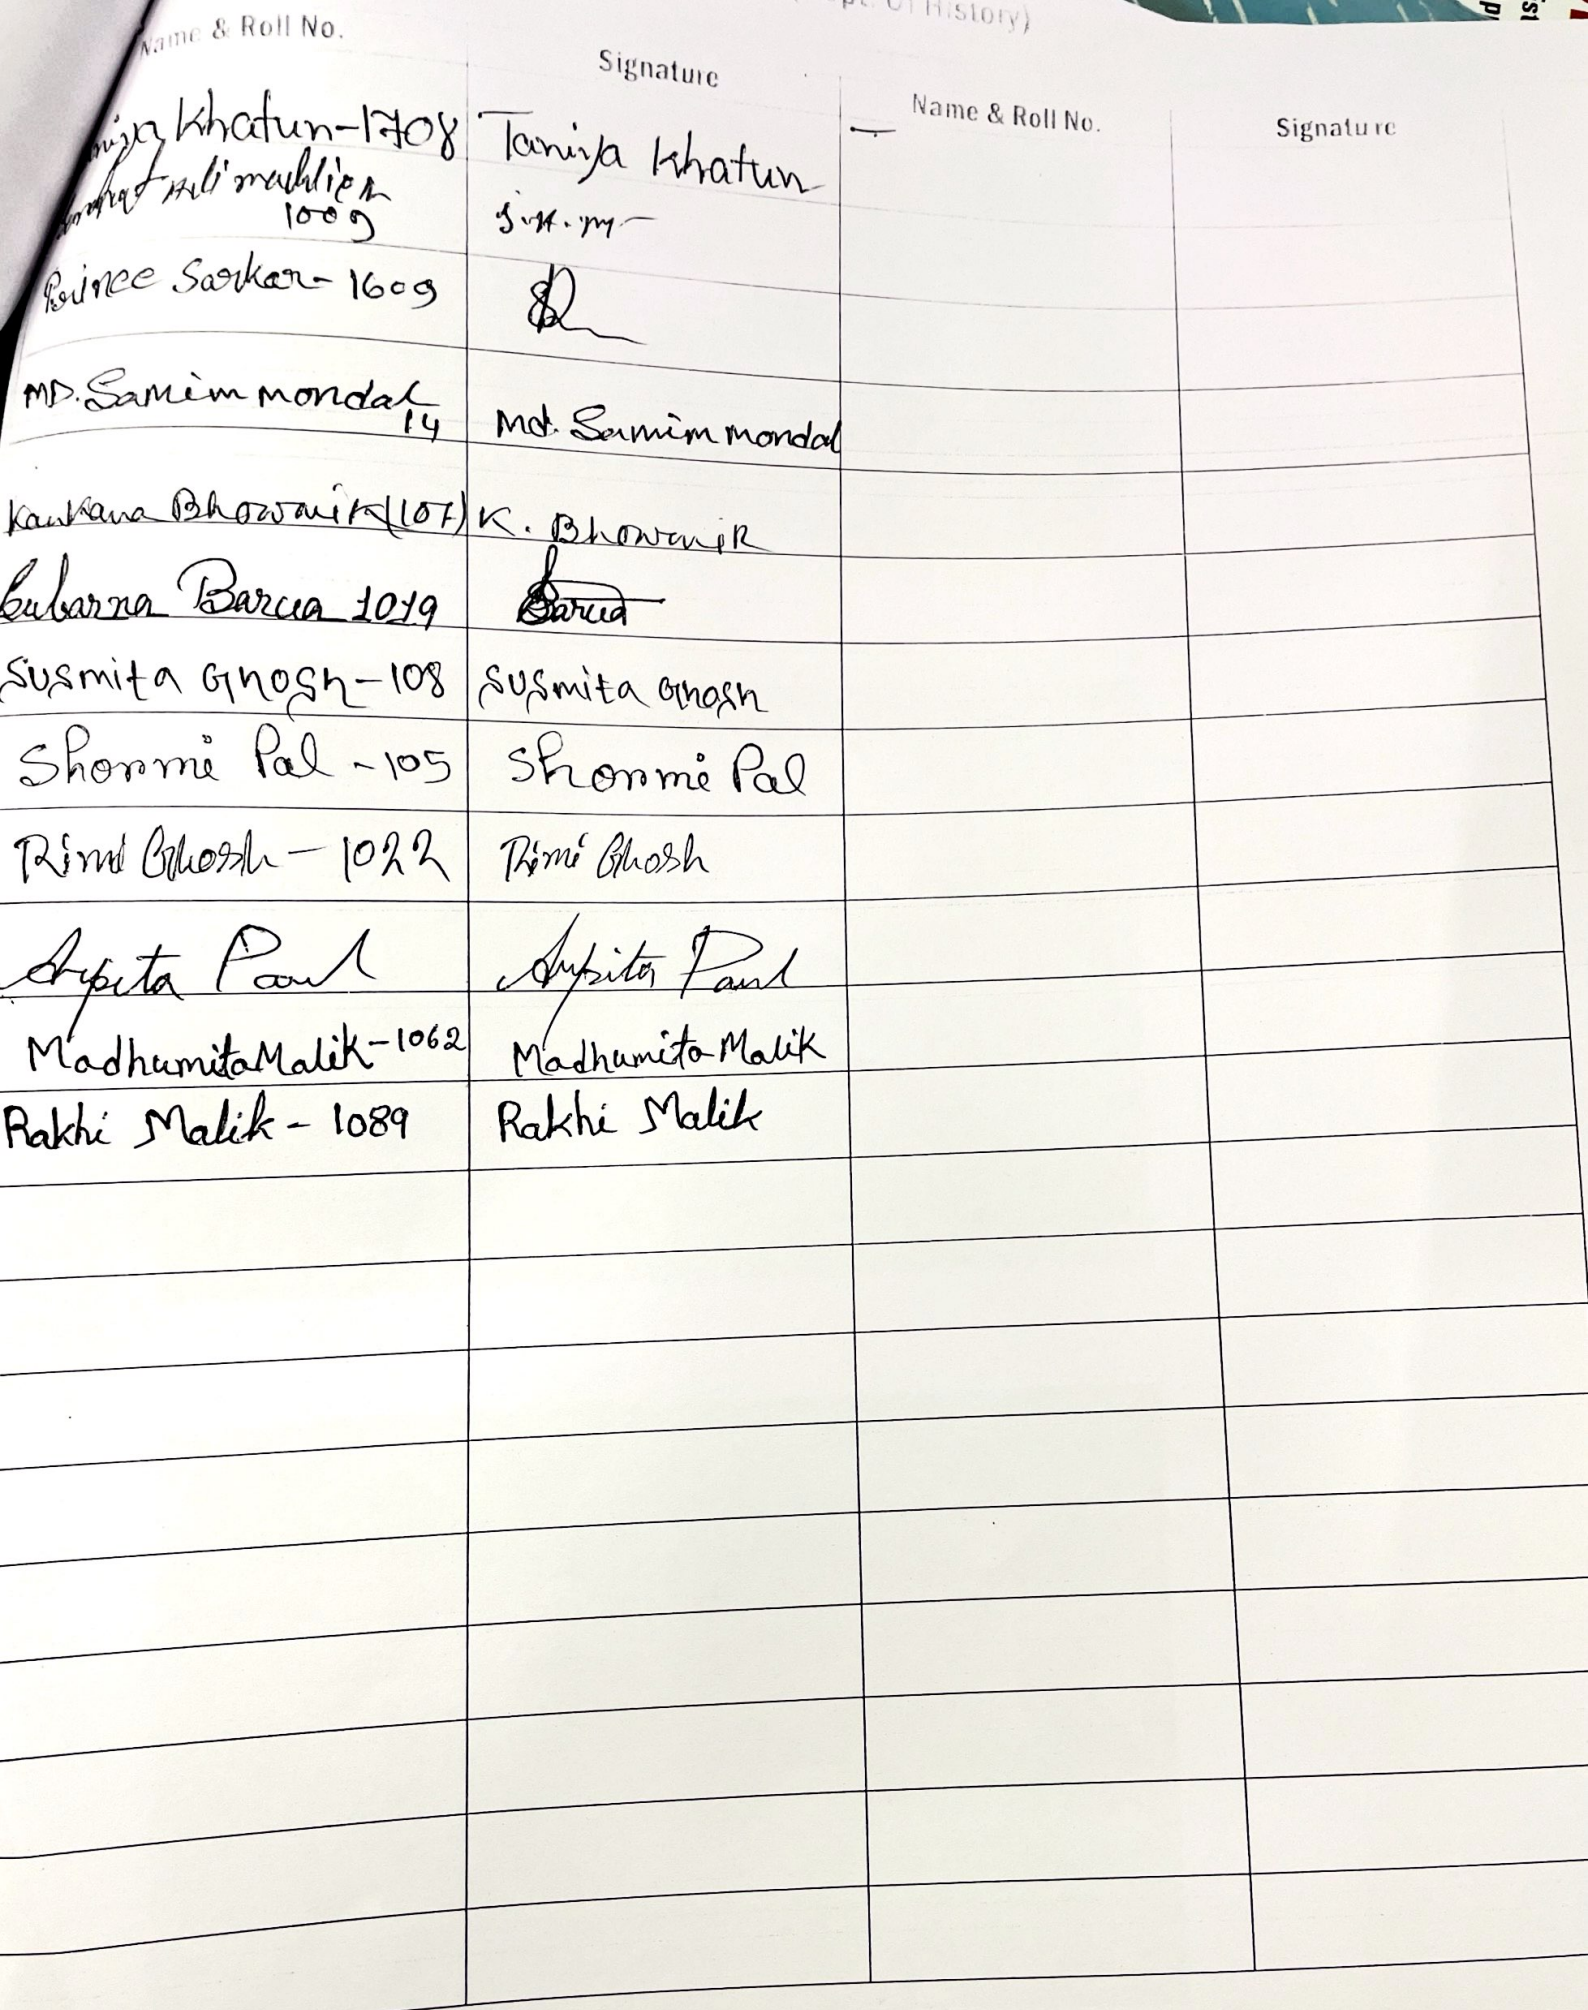 Of History)
Name & Roll No. Signature Name & Roll No. Signature
Khatun-1708 Taniya Khatun
1009
Prince Sarkar- 1609
MD. Samim mondal
14 Md. Samim mondal
Kankana Bhowmik(107) K. Bhowmik
Subarna Barua 1019 Barua
Susmita Ghosh-108 Susmita Ghosh
Shormi Pal -105 Shormi Pal
Rimi Ghosh - 1022 Rimi Ghosh
Arpita Paul Arpita Paul
Madhumita Malik-1062 Madhumita Malik
Rakhi Malik - 1089 Rakhi Malik